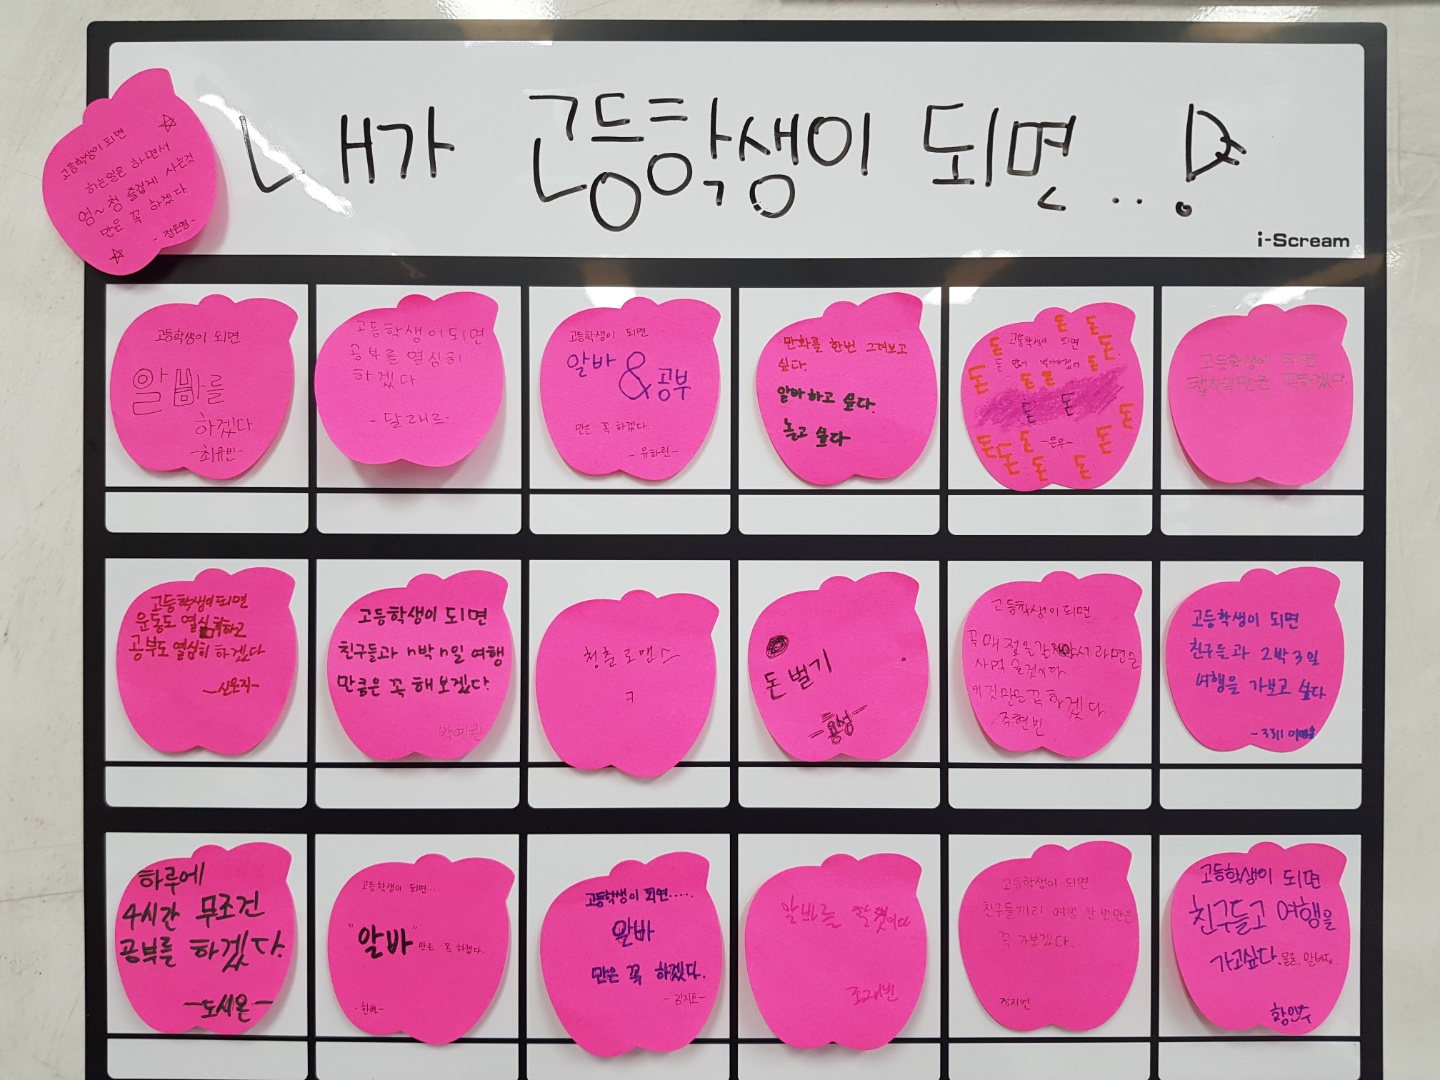 내가 고등학생이 되면...!
i-Scream
고등학생이 되면
하는일은 하면서
엄~청 즐겁게 사는것
만은 꼭 하겠다.
고등학생이 되면
알바를
하겠다
-최유빈-
고등학생이 되면
공부를 열심히
하겠다.
-달래르-
고등학생이 되면
알바 & 공부
만은 꼭 하겠다.
-유하린-
만화를 한번 그려보고
싶다.
알바하고 싶다.
놀고 싶다
돈 돈 돈
고등학생이 되면
돈 돈 돈 돈
돈 돈 돈
돈 돈 -은우- 돈
돈 돈 돈
고등학생이 되면
꼭하겠다.
고등학생이 되면
운동도 열심히하고
공부도 열심히 하겠다
고등학생이 되면
친구들과 n박 n일 여행
만큼은 꼭 해보겠다.
청춘 로맨스
ㅋ
돈 벌기
-용성-
고등학생이 되면
라면을
이것만은 꼭 하겠다
고등학생이 되면
친구들과 2박 3일
여행을 가보고 싶다
하루에
4시간 무조건
공부를 하겠다.
-도시온-
고등학생이 되면...
"알바"만은 꼭 하겠다.
고등학생이 되면.....
알바
만은 꼭 하겠다.
알바를 할것이다
고등학생이 되면
친구들끼리 여행 한번만은
꼭 가보겠다.
고등학생이 되면
친구들고 여행을
가고싶다.